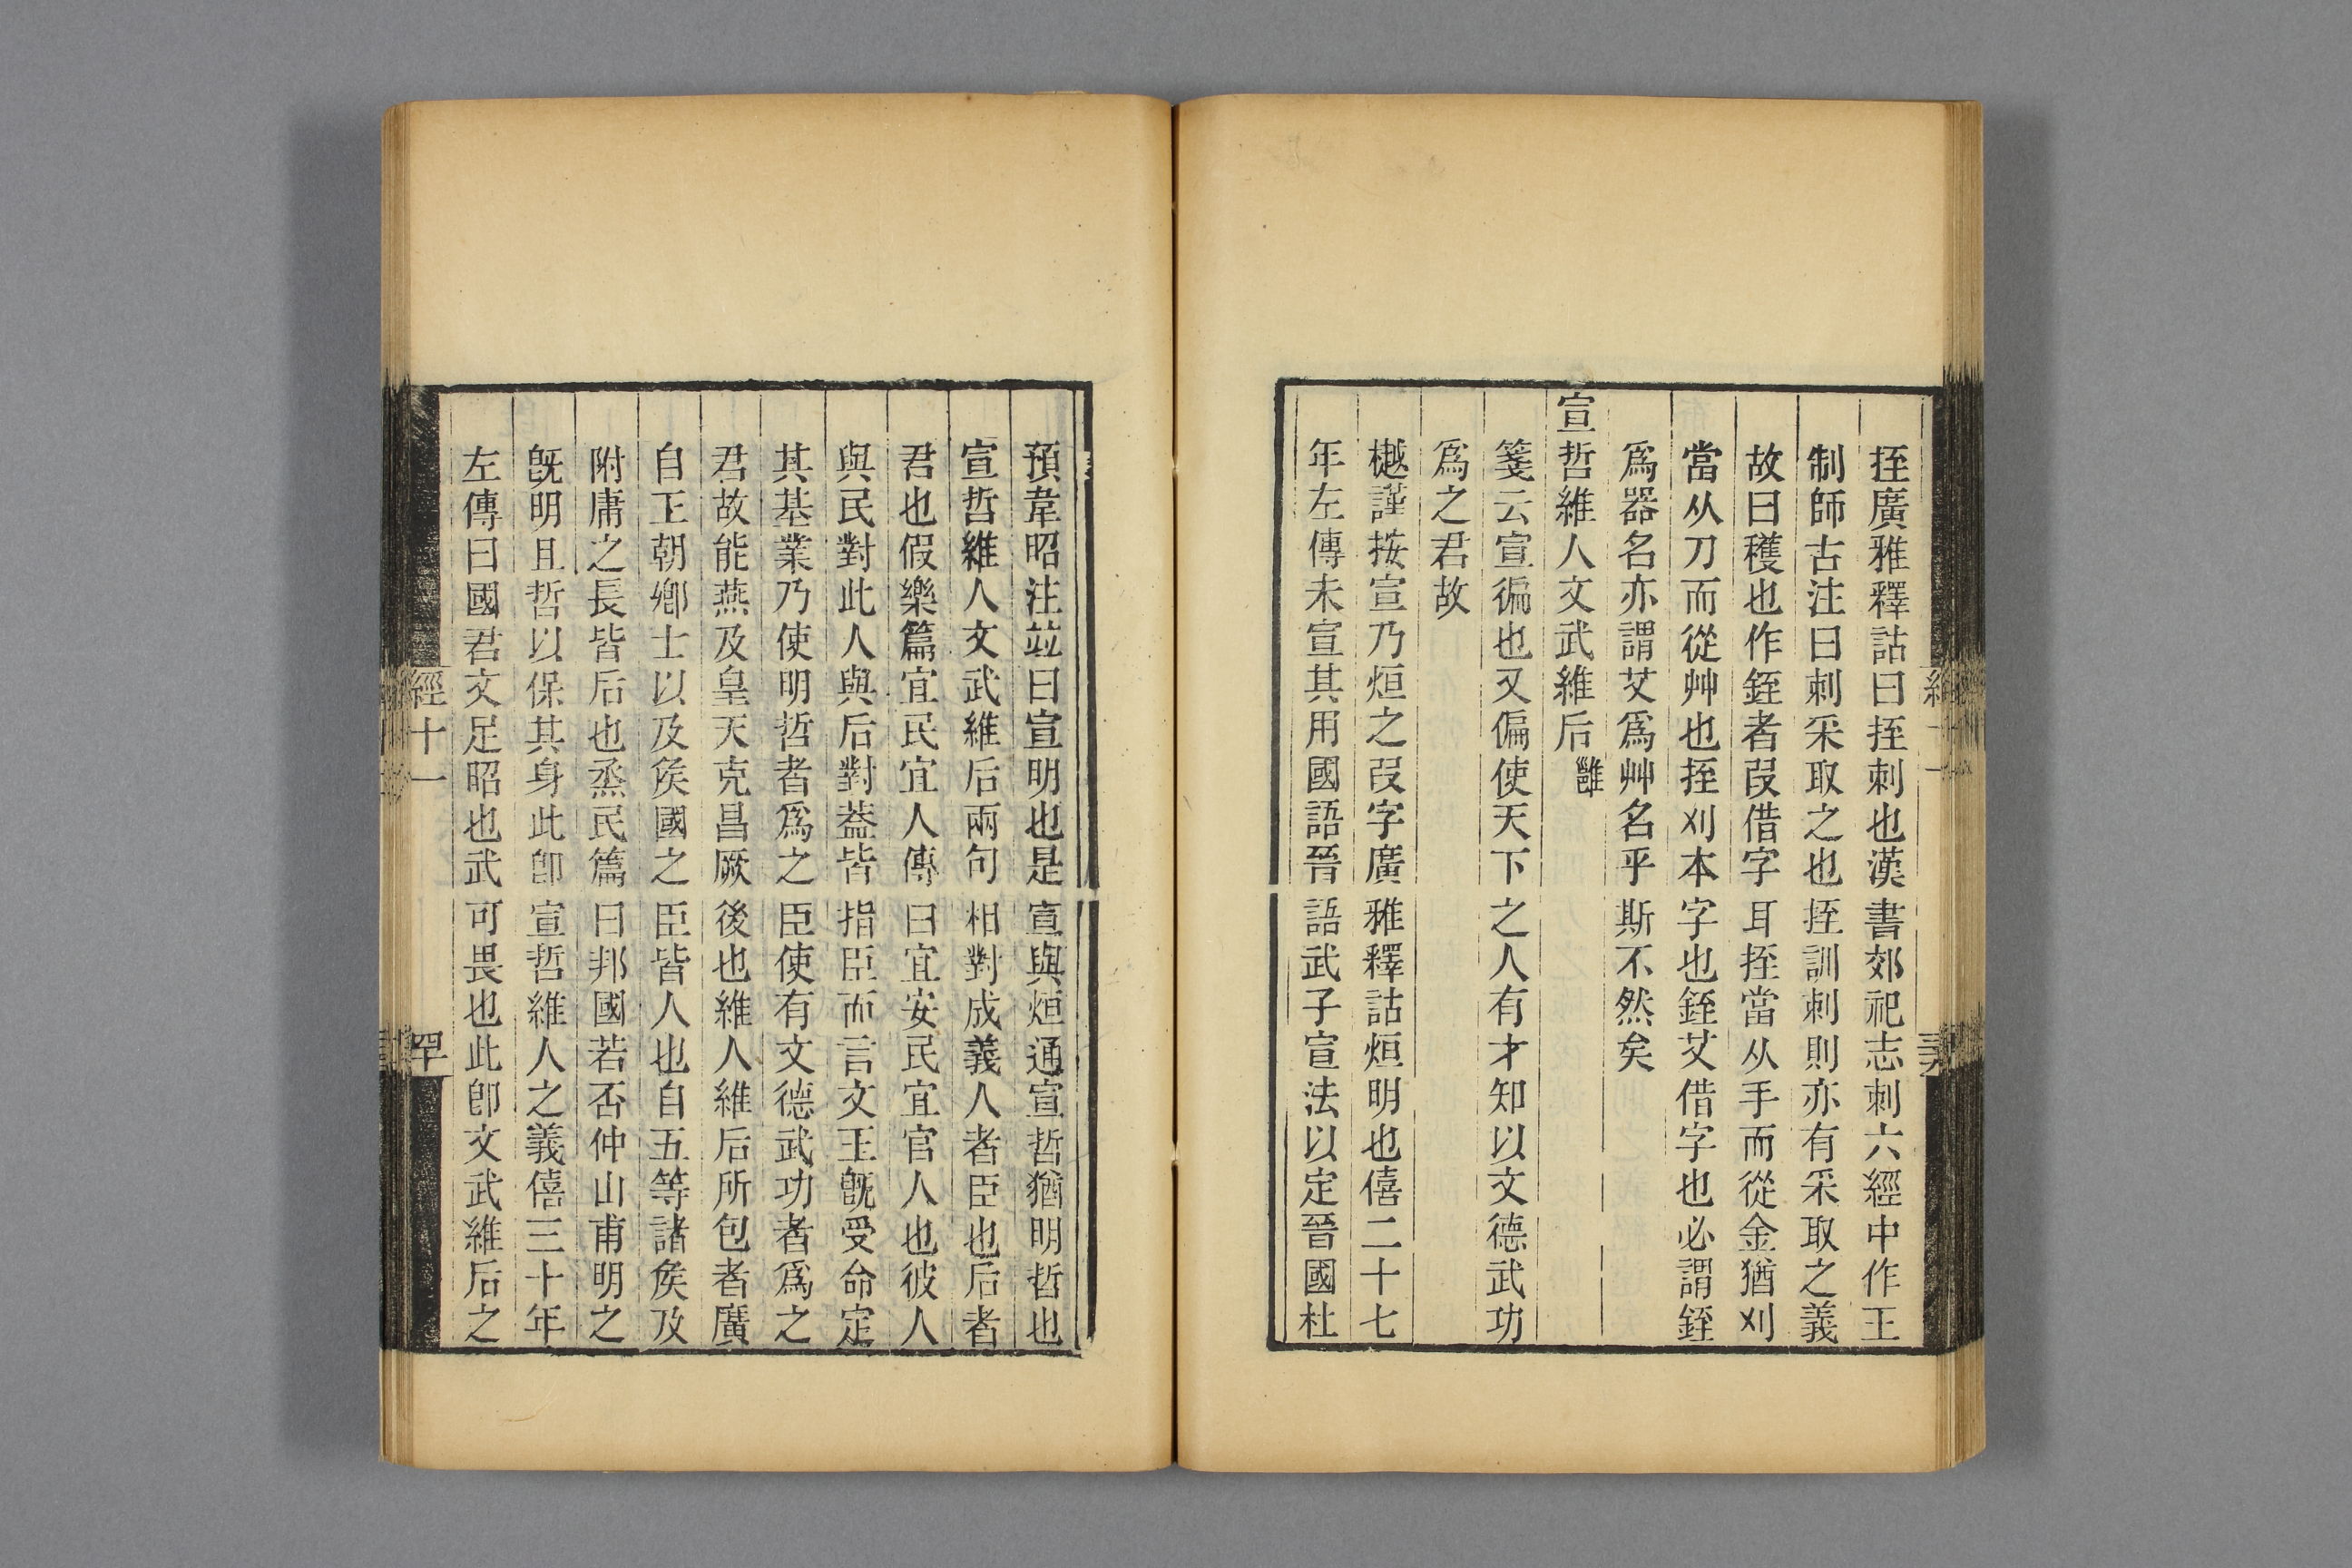 挃廣雅釋詁曰挃刺也漢書郊祀志刺六經中作王
制師古注曰刺采取之也挃訓刺則亦有采取之義
故曰穫也作銍者叚借字耳挃當从手而從金猶刈
當从刀而從艸也挃刈本字也銍艾借字也必謂銍
爲器名亦謂艾爲艸名乎斯不然矣
宣哲維人文武維后雝
箋云宣徧也又偏使天下之人有才知以文德武功
爲之君故
樾謹按宣乃烜之叚字廣雅釋詁烜明也僖二十七
年左傳未宣其用國語晉語武子宣法以定晉國杜
預韋昭注竝曰宣明也是宣與烜通宣哲猶明哲也
宣哲維人文武維后兩句相對成義人者臣也后者
君也假樂篇宜民宜人傳曰宜安民宜官人也彼人
與民對此人與后對葢皆指臣而言文王旣受命定
其基業乃使明哲者爲之臣使有文德武功者爲之
君故能燕及皇天克昌厥後也維人維后所包者廣
自王朝鄉士以及矦國之臣皆人也自五等諸矦及
附庸之長皆后也烝民篇曰邦國若否仲山甫明之
旣明且哲以保其身此卽宣哲維人之義僖三十年
左傳曰國君文足昭也武可畏也此卽文武維后之
經十一
罕